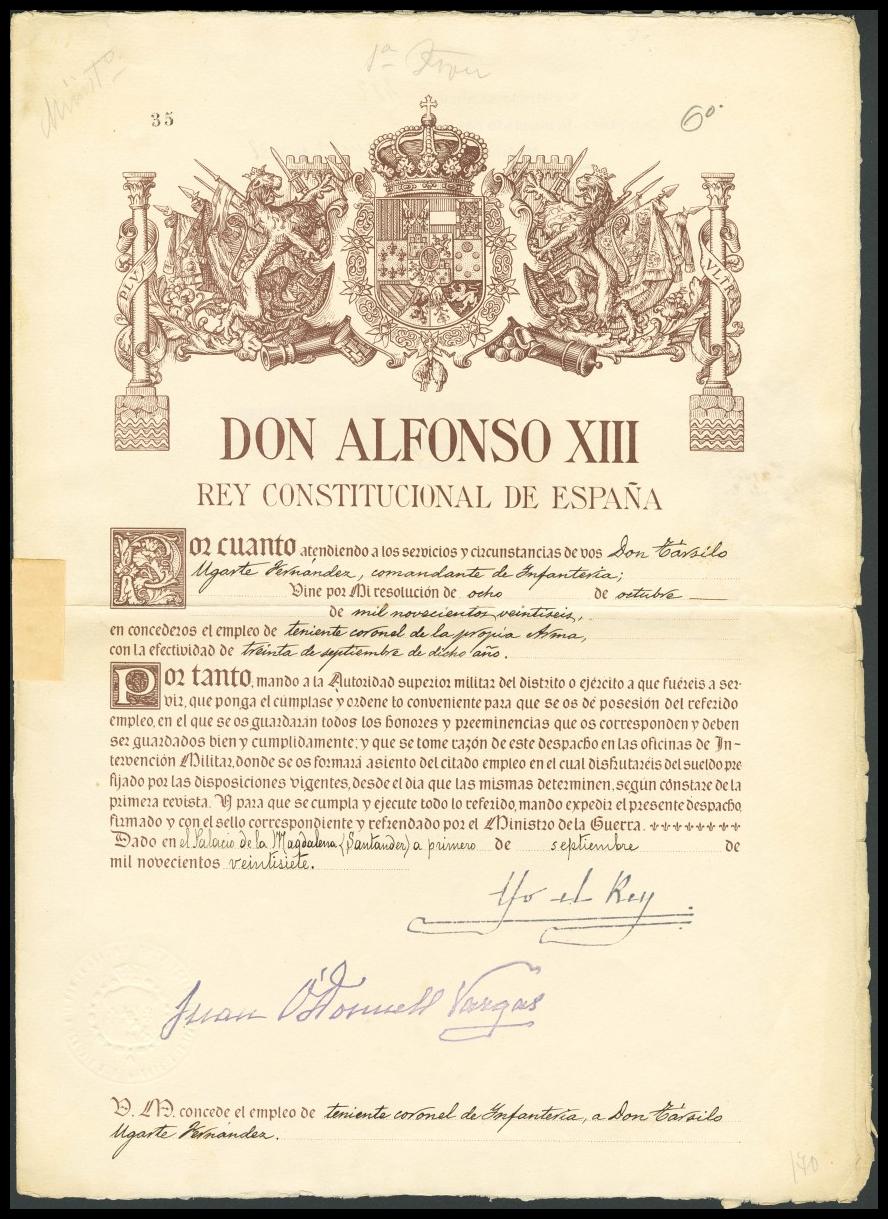 1ª
35
6º
PLVS
VLTRA
DON ALFONSO XIII
REY CONSTITUCIONAL DE ESPAÑA
Por cuanto atendiendo a los servicios y circunstancias de vos Don Társilo
Ugarte Fernández, comandante de Infantería;
Vine por Mi resolución de ocho de octubre
de mil novecientos veintiseis,
en concederos el empleo de teniente coronel de la propia Arma,
con la efectividad de treinta de septiembre de dicho año.
Por tanto, mando a la Autoridad superior militar del distrito o ejército a que fuéreis a ser-
vir, que ponga el cúmplase y ordene lo conveniente para que se os dé posesión del referido
empleo, en el que se os guardarán todos los honores y preeminencias que os corresponden y deben
ser guardados bien y cumplidamente; y que se tome razón de este despacho en las oficinas de In-
tervención Militar, donde se os formará asiento del citado empleo en el cual disfrutaréis del sueldo pre
fijado por las disposiciones vigentes, desde el día que las mismas determinen, según cónstare de la
primera revista. Y para que se cumpla y ejecute todo lo referido, mando expedir el presente despacho,
firmado y con el sello correspondiente y refrendado por el Ministro de la Guerra.
Dado en el Palacio de la Magdalena (Santander) a primero de septiembre de
mil novecientos veintisiete.
Yo el Rey
Juan O'Donnell Vargas
V. M. concede el empleo de teniente coronel de Infantería, a Don Társilo
Ugarte Fernández.
140